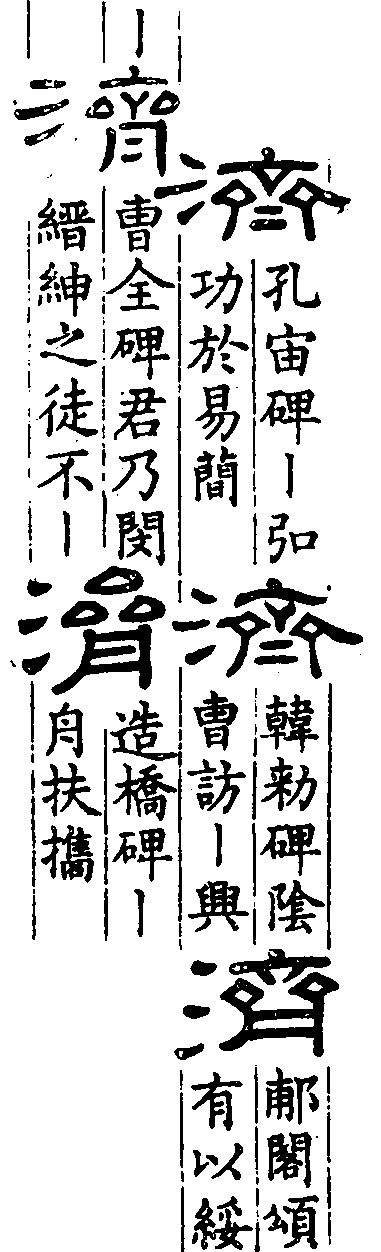 濟
孔宙碑丨弘
功於易簡
濟
韓勑碑陰
曺訪丨興
濟
郙閣頌
有以綏
丨
濟
曺全碑君乃閔
縉紳之徒不丨
濟
造橋碑丨
舟扶攜